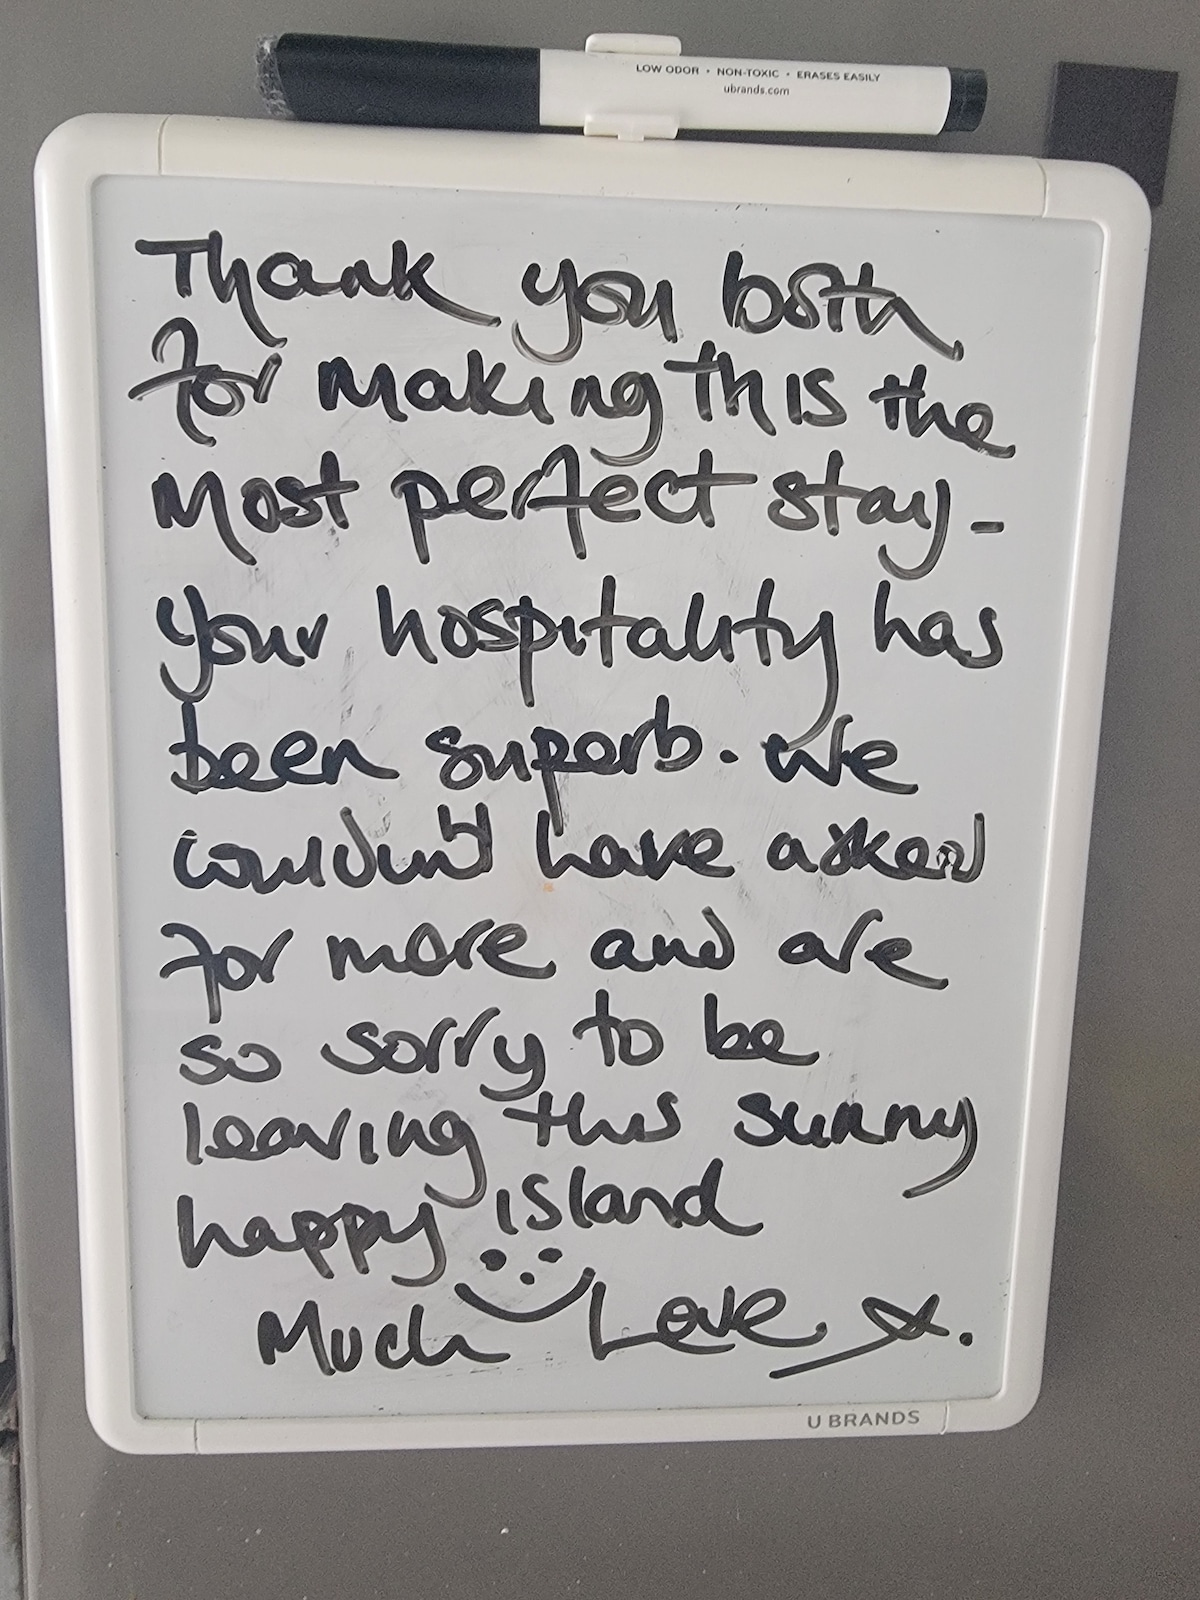 LOW ODOR • NON-TOXIC • ERASES EASILY
ubrands.com
Thank you both
for making this the
most perfect stay -
your hospitality has
been superb. We
couldn't have asked
for more and are
so sorry to be
leaving this sunny
happy island
Much Love x.
U BRANDS